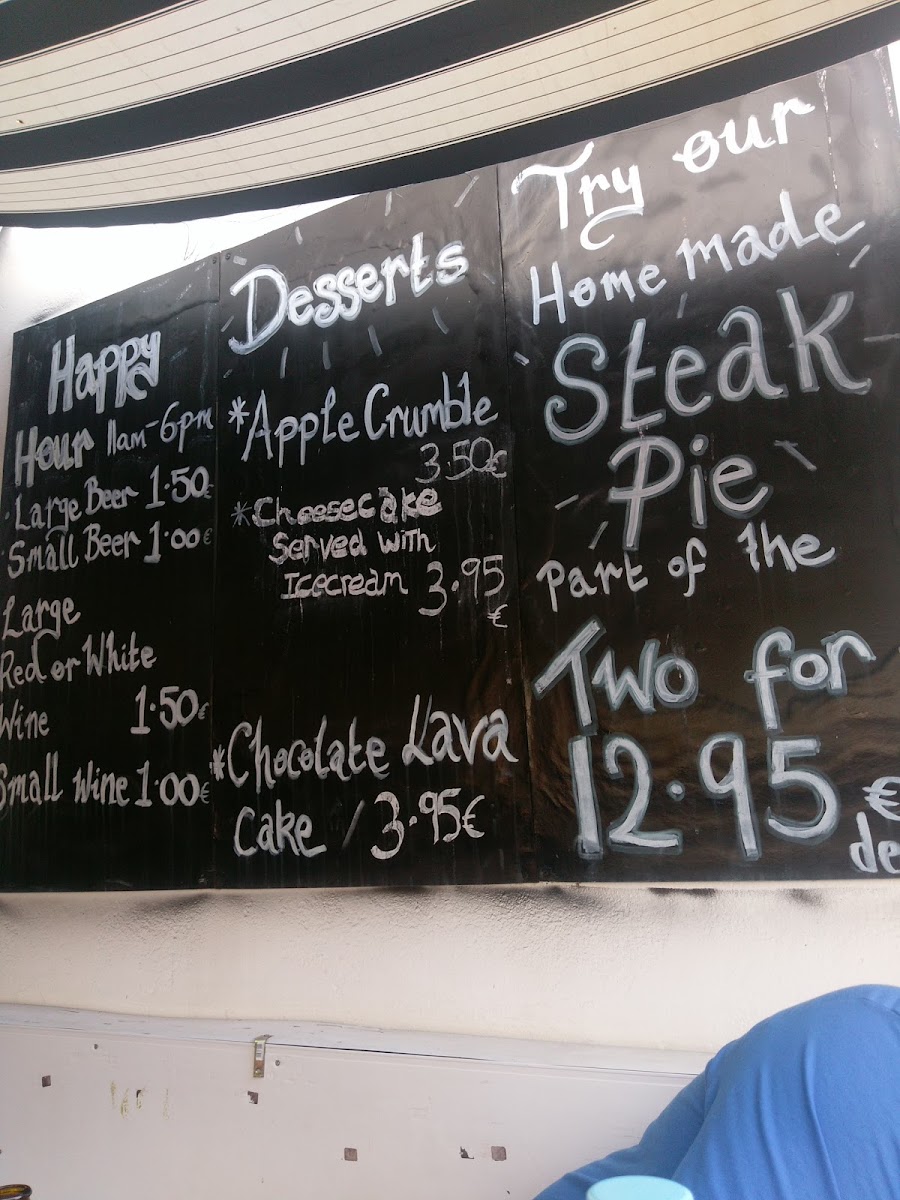 Happy
Hour 11am-6pm
Large Beer 1.50€
Small Beer 1.00€
Large
Red or White
Wine 1.50€
Small Wine 1.00€
Desserts
*Apple Crumble
3.50€
*Cheesecake
Served with
Icecream 3.95
€
*Chocolate Lava
Cake / 3.95€
Try our
Home made
Steak
Pie
Part of the
Two for
12.95
€
de